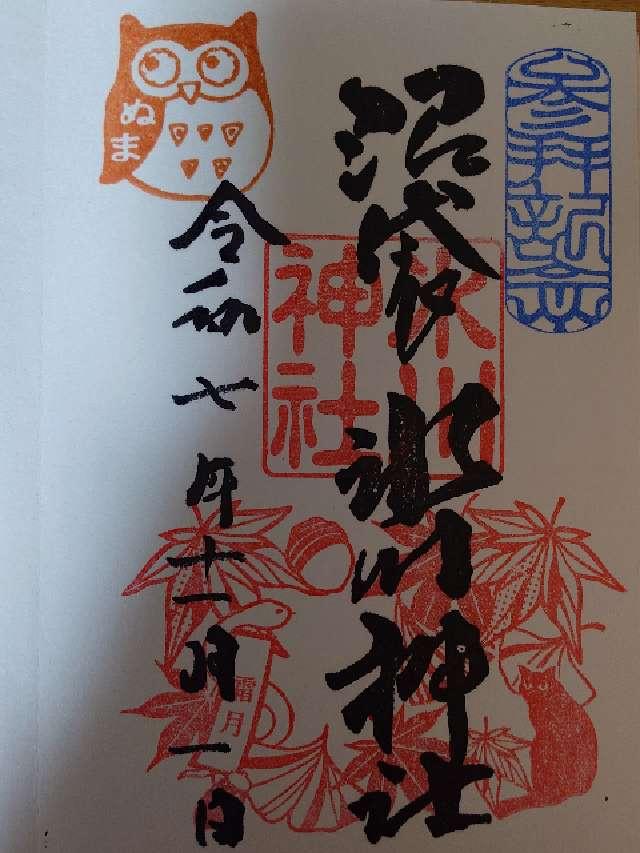 参拝記念
沼袋氷川神社
氷川
神社
令和七年十一月一日
ぬま
霜月